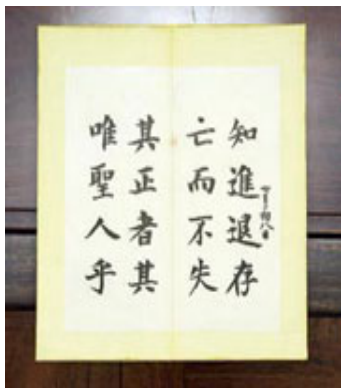 知進退存
亡而不失
其正者其
唯聖人乎